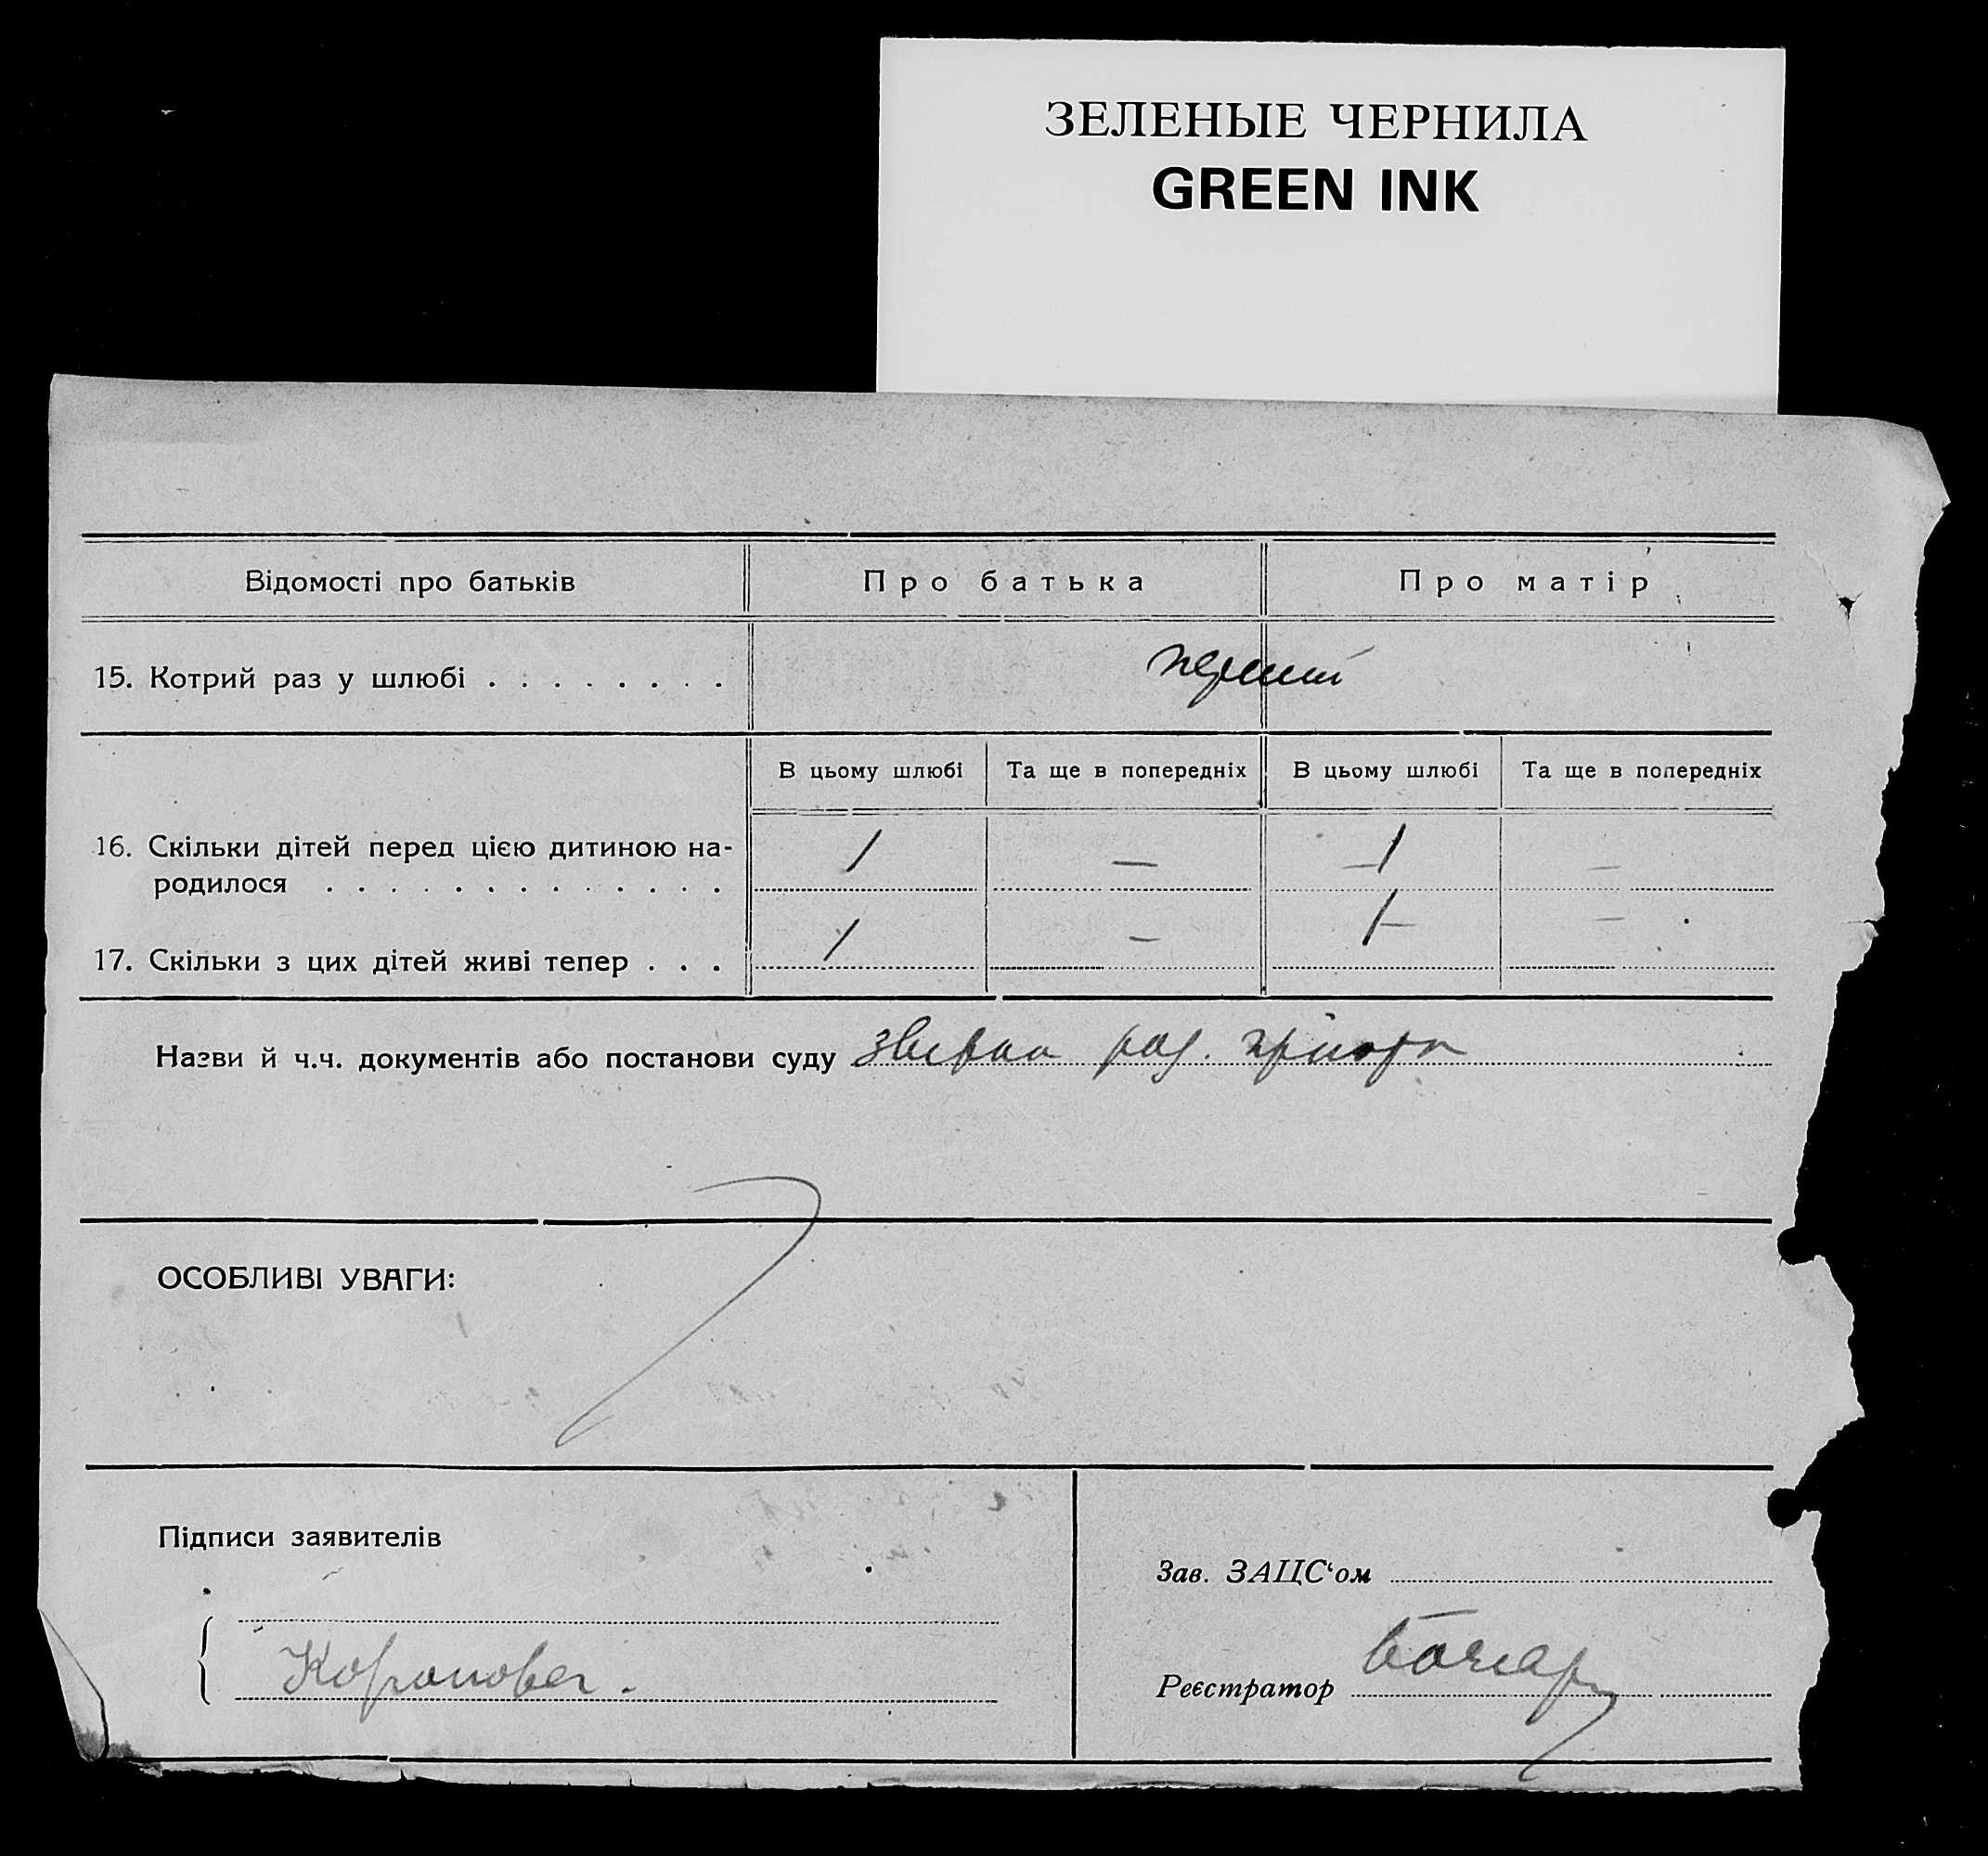 ЗЕЛЕНЫЕ ЧЕРНИЛА
GREEN INK
Відомості про батьків Про батька Про матір
15. Котрий раз у шлюбі . . . . . . . . перший
В цьому шлюбі Та ще в попередніх В цьому шлюбі Та ще в попередніх
16. Скільки дітей перед цією дитиною на-
родилося . . . . . . . . . . . . . 1 — 1 —
17. Скільки з цих дітей живі тепер . . . 1 — 1 —
Назви й ч.ч. документів або постанови суду
ОСОБЛИВІ УВАГИ:
Підписи заявителів
Зав. ЗАЦС‘ом
Реєстратор